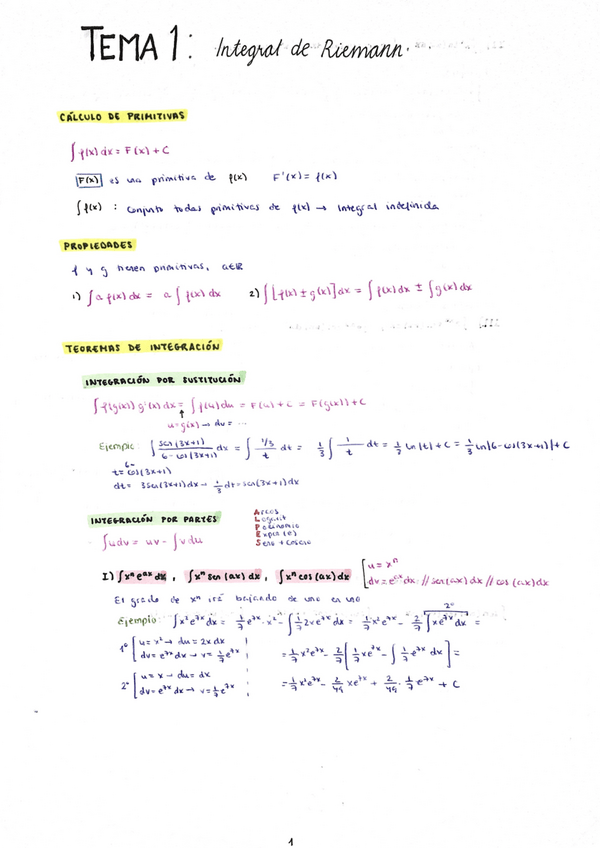 TEMA 1: Integral de Riemann.
CÁLCULO DE PRIMITIVAS
∫ f(x) dx = F(x) + C
F(x) es una primitiva de f(x) F'(x) = f(x)
∫ f(x) : conjunto todas primitivas de f(x) → Integral indefinida
PROPIEDADES
f y g tienen primitivas, a∈ℝ
1) ∫ a f(x) dx = a ∫ f(x) dx 2) ∫ [f(x) ± g(x)] dx = ∫ f(x) dx ± ∫ g(x) dx
TEOREMAS DE INTEGRACIÓN
INTEGRACIÓN POR SUSTITUCIÓN
∫ f(g(x)) g'(x) dx = ∫ f(u) du = F(u) + C = F(g(x)) + C
u = g(x) → du = ...
Ejemplo: ∫ sen(3x+1)/(6 - cos(3x+1)) dx = ∫ (1/3)/t dt = 1/3 ∫ 1/t dt = 1/3 ln|t| + C = 1/3 ln|6 - cos(3x+1)| + C
t = 6 - cos(3x+1)
dt = 3sen(3x+1) dx → 1/3 dt = sen(3x+1) dx
INTEGRACIÓN POR PARTES
∫ u dv = uv - ∫ v du
Arcos
Logarit
Polinomio
Expon (e)
Seno + coseno
I) ∫ xⁿ e^(ax) dx , ∫ xⁿ sen (ax) dx , ∫ xⁿ cos (ax) dx
u = xⁿ
dv = e^(ax) dx // sen(ax) dx // cos (ax) dx
El grado de xⁿ irá bajando de uno en uno
Ejemplo ∫ x² e^(7x) dx = 1/7 e^(7x) · x² - ∫ 1/7 2x e^(7x) dx = 1/7 x² e^(7x) - 2/7 ∫ x e^(7x) dx =
2º
1º u = x² → du = 2x dx
dv = e^(7x) dx → v = 1/7 e^(7x)
= 1/7 x² e^(7x) - 2/7 [1/7 x e^(7x) - ∫ 1/7 e^(7x) dx] =
2º u = x → du = dx
dv = e^(7x) dx → v = 1/7 e^(7x)
= 1/7 x² e^(7x) - 2/49 x e^(7x) + 2/49 · 1/7 e^(7x) + C
1